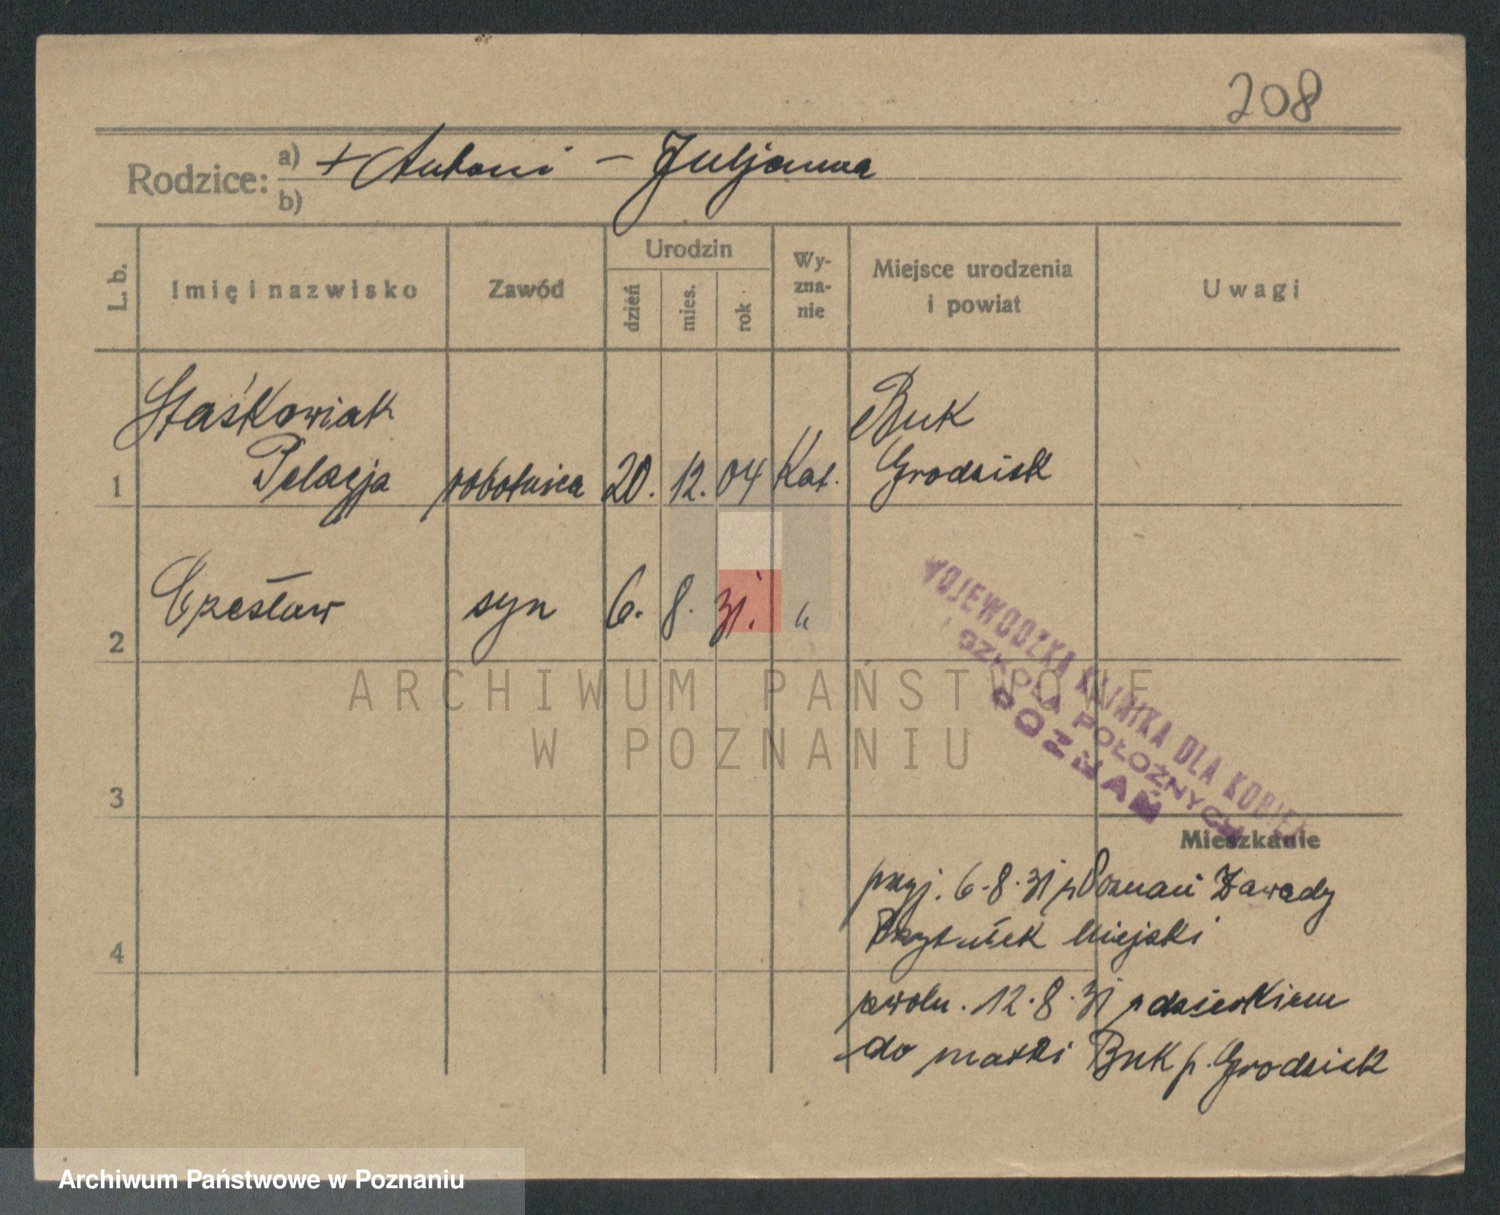 208
Rodzice: a) + Antoni - Juljanna
b)
L. b.
Imię i nazwisko
Zawód
Urodzin
dzień
mies.
rok
Wy-
zna-
nie
Miejsce urodzenia
i powiat
Uwagi
Staśkowiak
Buk
1 Pelagja robotnica 20. 12. 04 Kat. Grodzisk
2 Czesław syn 6. 8. 31. "
WOJEWÓDZKA KLINIKA DLA KOBIET
I SZKOŁA POŁOŻNYCH
POZNAŃ
ARCHIWUM PAŃSTWOWE
W POZNANIU
3
Mieszkanie
przyj. 6.8.31 z Poznań Zawady
4 Przytułek Miejski
zwoln. 12.8.31 z dzieckiem
do matki Buk p. Grodzisk
Archiwum Państwowe w Poznaniu